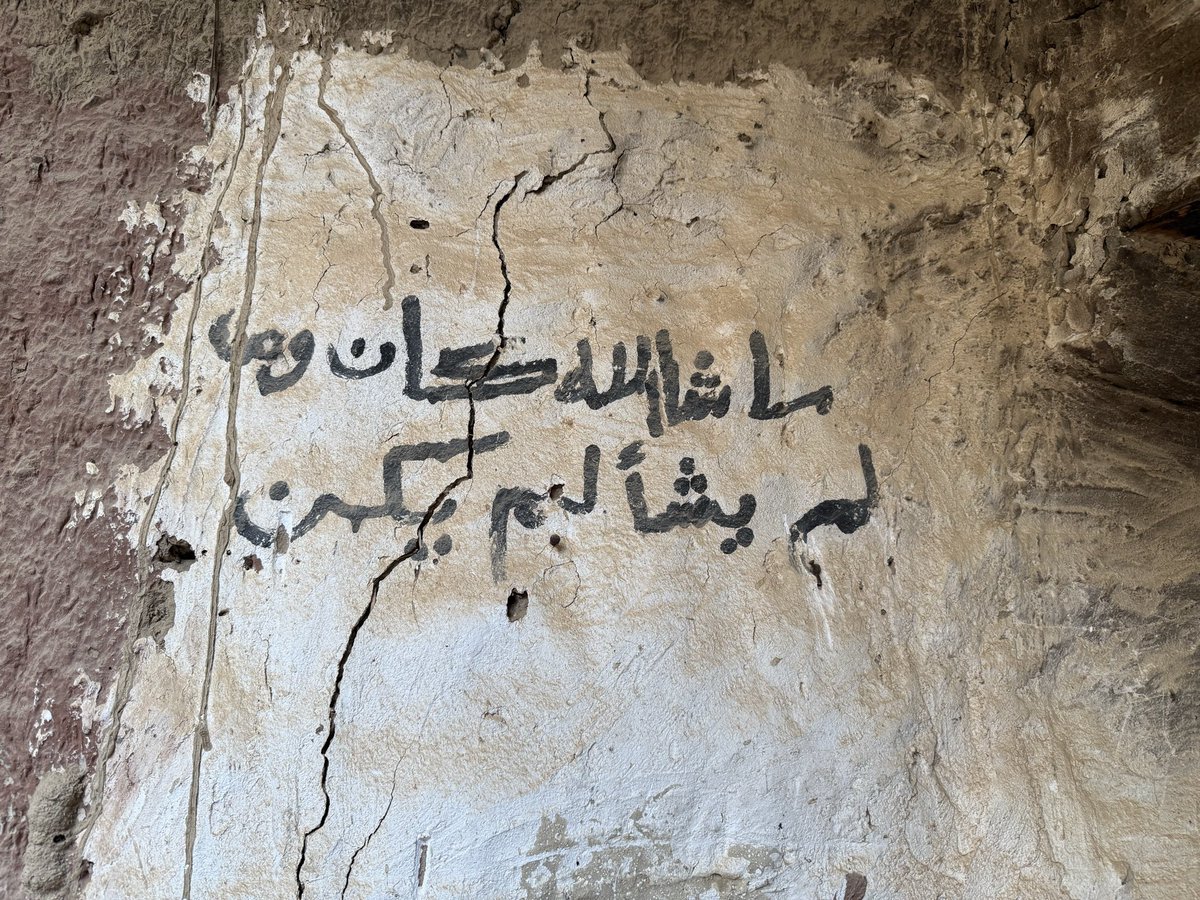 ما شا الله كان وما
لم يشأ لم يكن